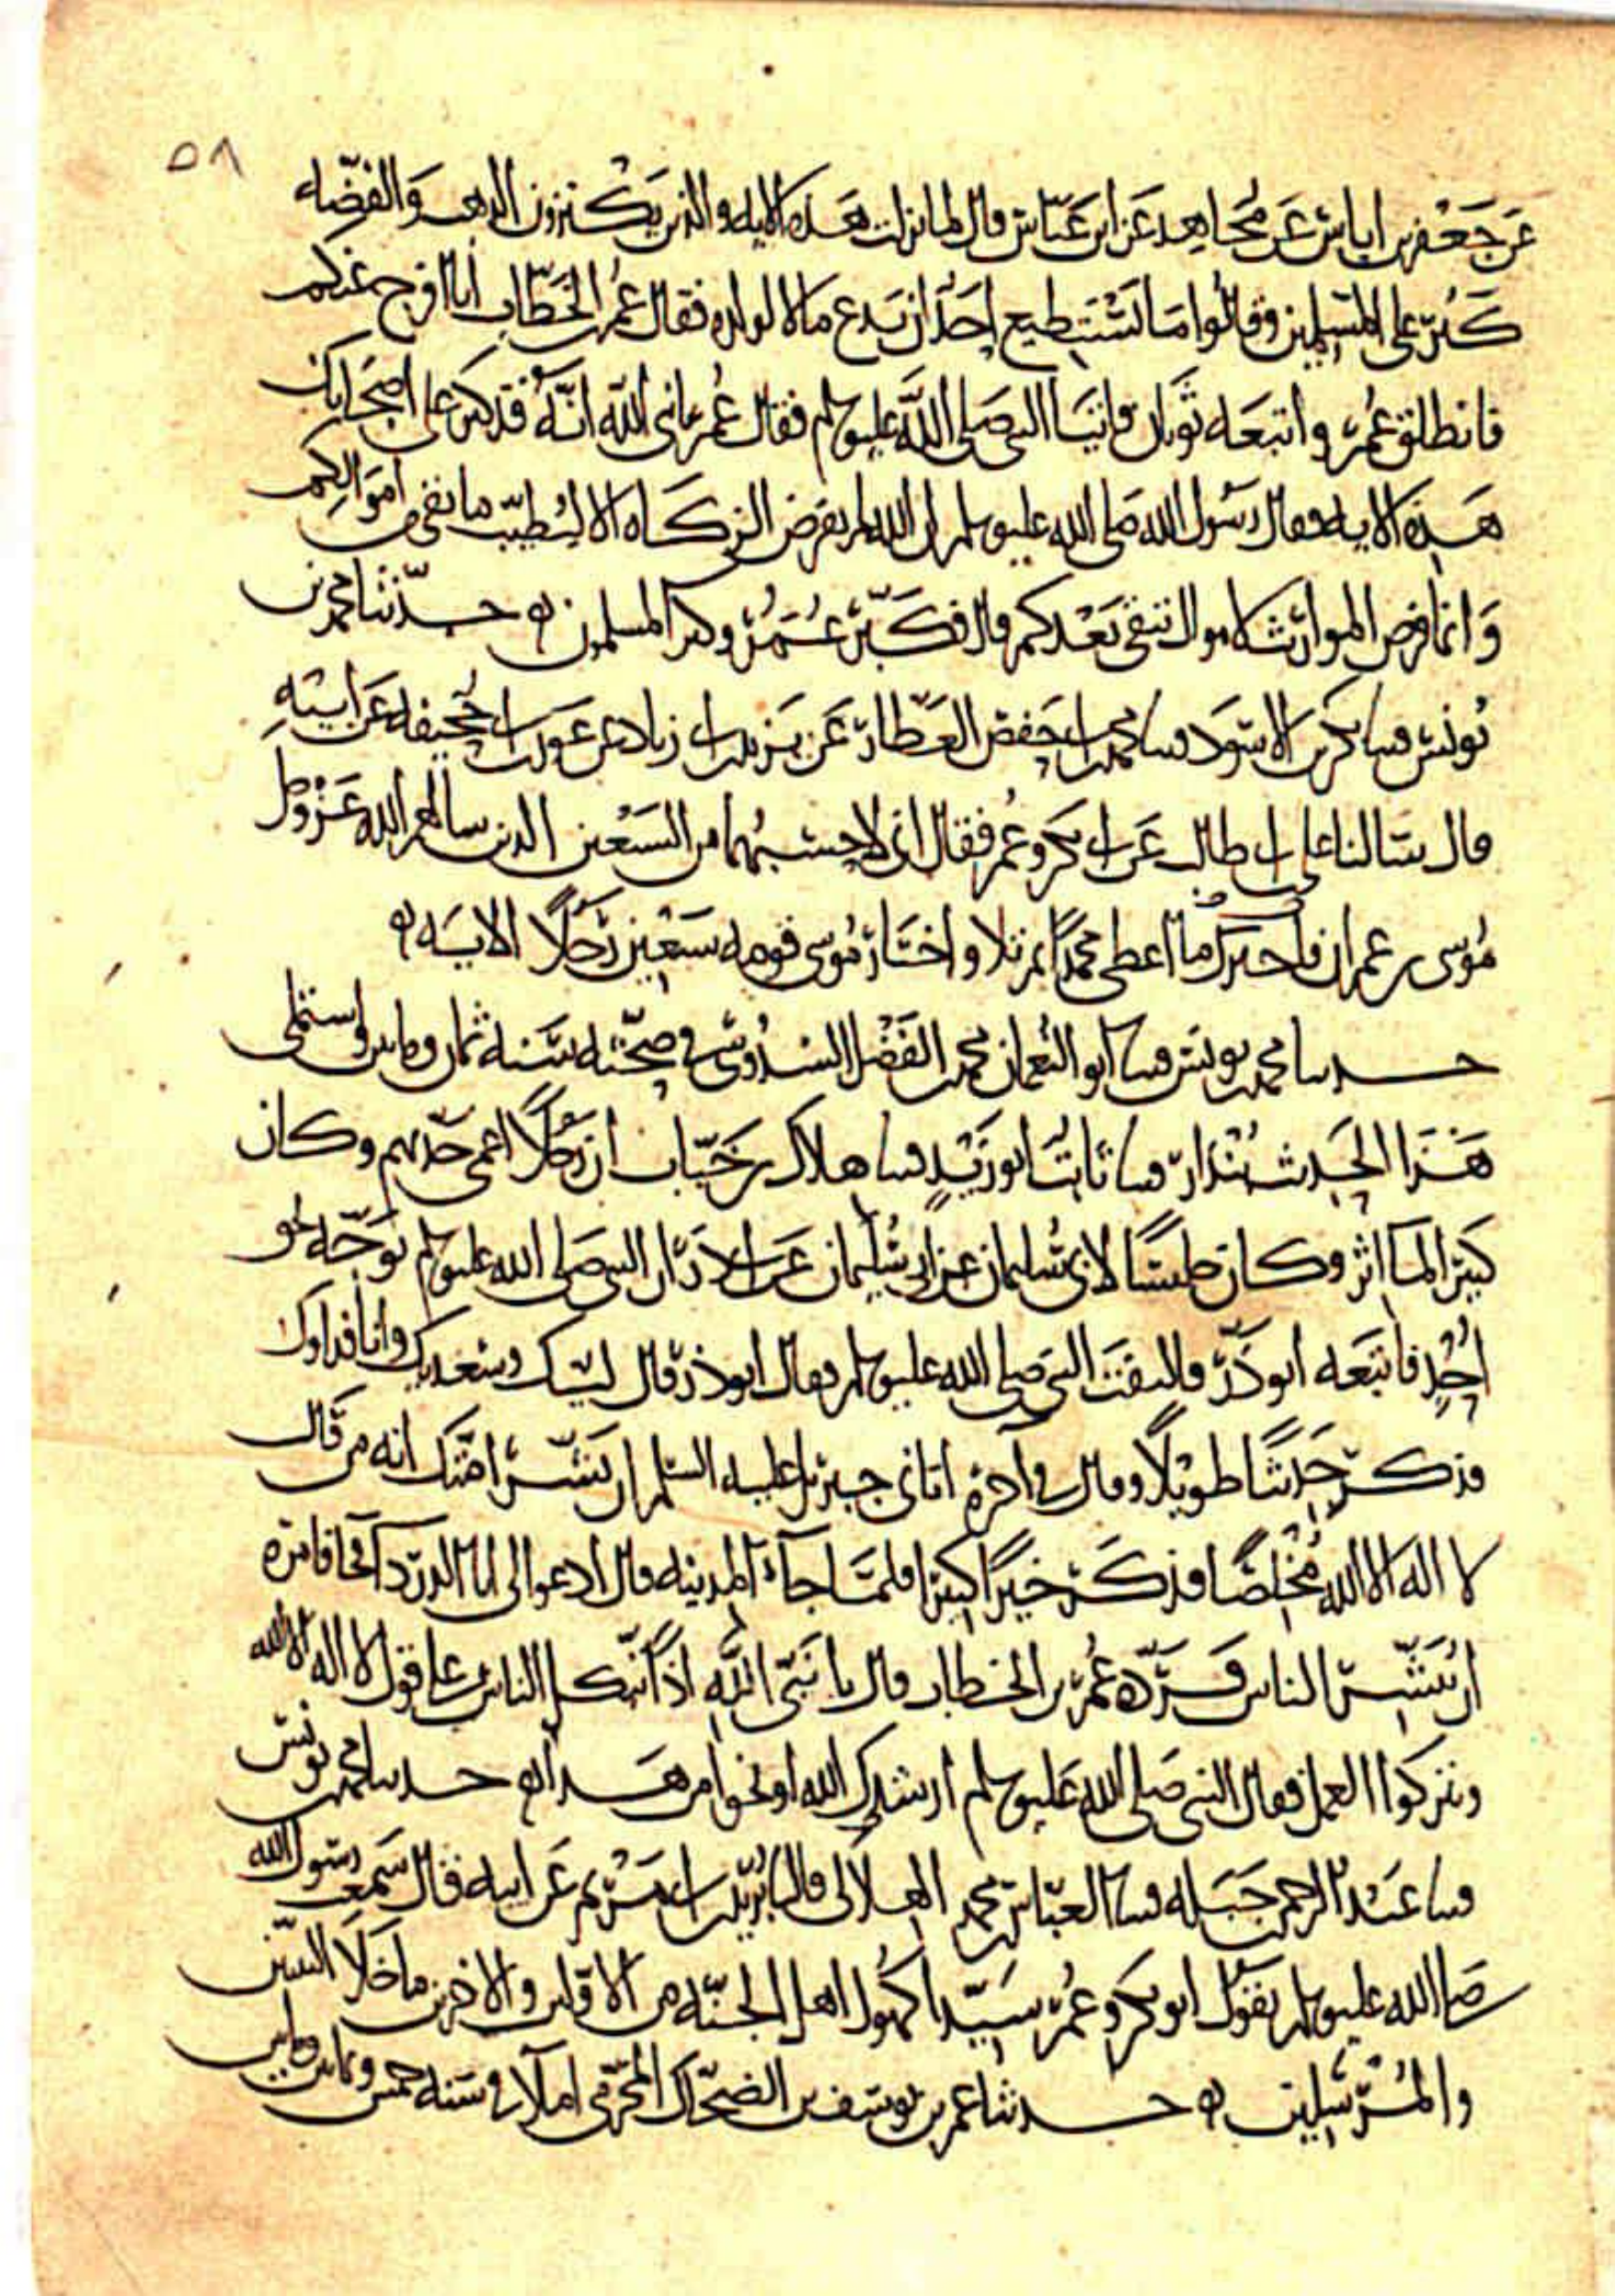 ٥٨
عن جعفر بن اياس عن مجاهد عن ابن عباس قال لما نزلت هذه الايه والذين يكنزون الذهب والفضه
كبر على المسلمين وقالوا ما يستطيع احد ان يدع مالا لولده فقال عمر بن الخطاب انا افرج عنكم
فانطلق عمر واتبعه ثوبان فاتيا النبي صلى الله عليه وسلم فقال عمر يا نبي الله انه قد كبر على اصحابك
هذه الايه فقال رسول الله صلى الله عليه وسلم ان الله لم يفرض الزكاه الا ليطيب ما بقي من اموالكم
وانما فرض المواريث لاموال تبقى بعدكم قال فكبر عمر وكبر المسلمون ه حدثنا محمد بن
يونس قثنا بكر بن الاسود قثنا محمد بن ابي حفص العطار عن يزيد بن ابي زياد عن عون بن ابي جحيفه عن ابيه
قال سالنا علي بن ابي طالب عن ابي بكر وعمر فقال اني لاحسبهما من السبعين الذين سالهم الله عز وجل
موسى بن عمران فاخبرك ما اعطى محمدا ثم تلا واختار موسى قومه سبعين رجلا الايه ه
حدثنا محمد بن يونس قثنا ابو النعمان محمد بن الفضل السدوسي في صحته سنه ثمان ومائتين واستملى
هذا الحديث بندار قثنا ثابت ابو زيد قثنا هلال بن خباب ان رجلا اعمى حدثهم وكان
كبير الماثر وكان جليسا لابي سليمان عن ابي سليمان عن ابي ذر ان النبي صلى الله عليه وسلم توجه نحو
احد فاتبعه ابو ذر فالتفت النبي صلى الله عليه وسلم فقال ابو ذر قال لبيك وسعديك وانا فداوك
فذكر حديثا طويلا وقال في اخره اتاني جبريل عليه السلم ان بشر امتك انه من قال
لا اله الا الله مخلصا فذكر خيرا كبيرا فلما جاء المدينه قال ادعوا لي ابا الدرداء فجا فامره
ان يبشر الناس فرده عمر بن الخطاب قال يا نبي الله اذا يتكل الناس على قول لا اله الا الله
ويتركوا العمل فقال النبي صلى الله عليه وسلم ارشدك الله او نحوا من هذا ه حدثنا محمد بن يونس
قثنا عبد الرحمن بن جبله قثنا العباس بن محمد الهلالي قال ثنا بريد بن ابي مريم عن ابيه قال سمعت رسول الله
صلى الله عليه وسلم يقول ابو بكر وعمر سيدا كهول اهل الجنه من الاولين والاخرين ما خلا النبيين
والمرسلين ه حدثنا عمر بن يوسف بن الضحاك المخرمي املاء في سنه خمس وثمانين ومايتين